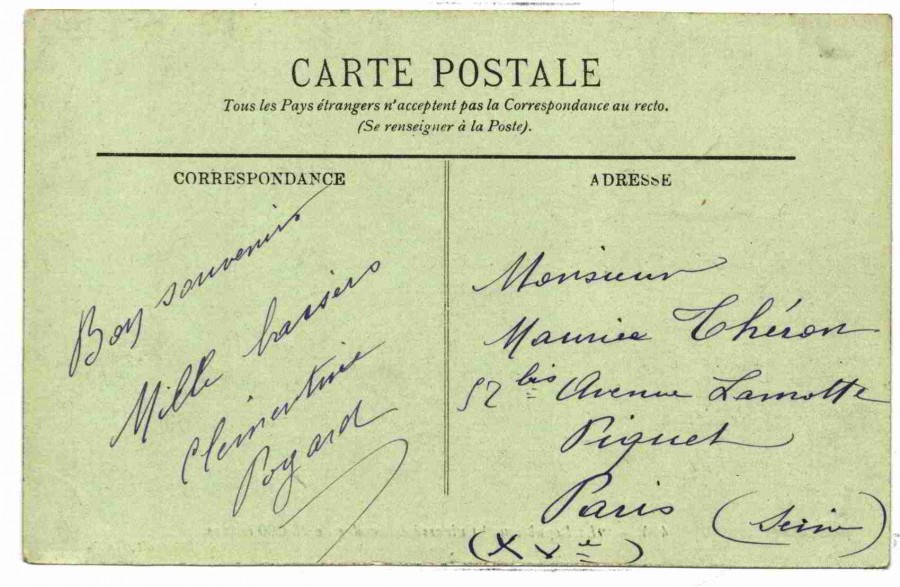 CARTE POSTALE
Tous les Pays étrangers n'acceptent pas la Correspondance au recto.
(Se renseigner à la Poste).
CORRESPONDANCE
Bon souvenir
Mille baisers
Clémentine
Pogard
ADRESSE
Monsieur
Maurice Théron
57 bis Avenue Lamotte
Piquet
Paris (Seine)
(XVe)